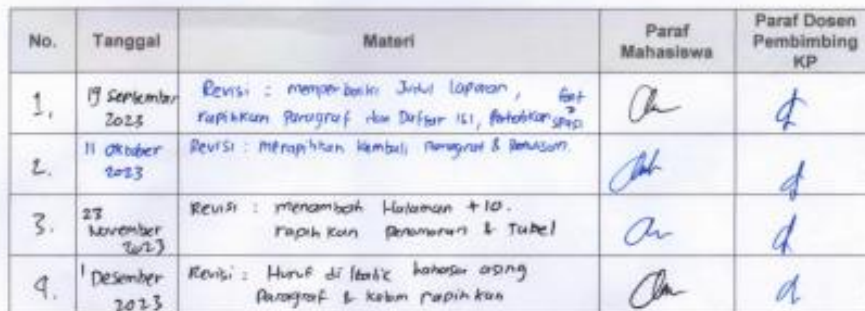 No. Tanggal Materi Paraf Mahasiswa Paraf Dosen Pembimbing KP
1. 19 September 2023 Revisi : memperbaiki Judul Laporan, Font
rapihkan Paragraf dan Daftar Isi, Perhatikan spasi
2. 11 Oktober 2023 Revisi : merapihkan kembali Paragraf & Penulisan.
3. 23 November 2023 Revisi : menambah Halaman +10.
rapih kan Penomoran & Tabel
4. 1 Desember 2023 Revisi : Huruf di Italic bahasa asing
Paragraf & kolom rapih kan